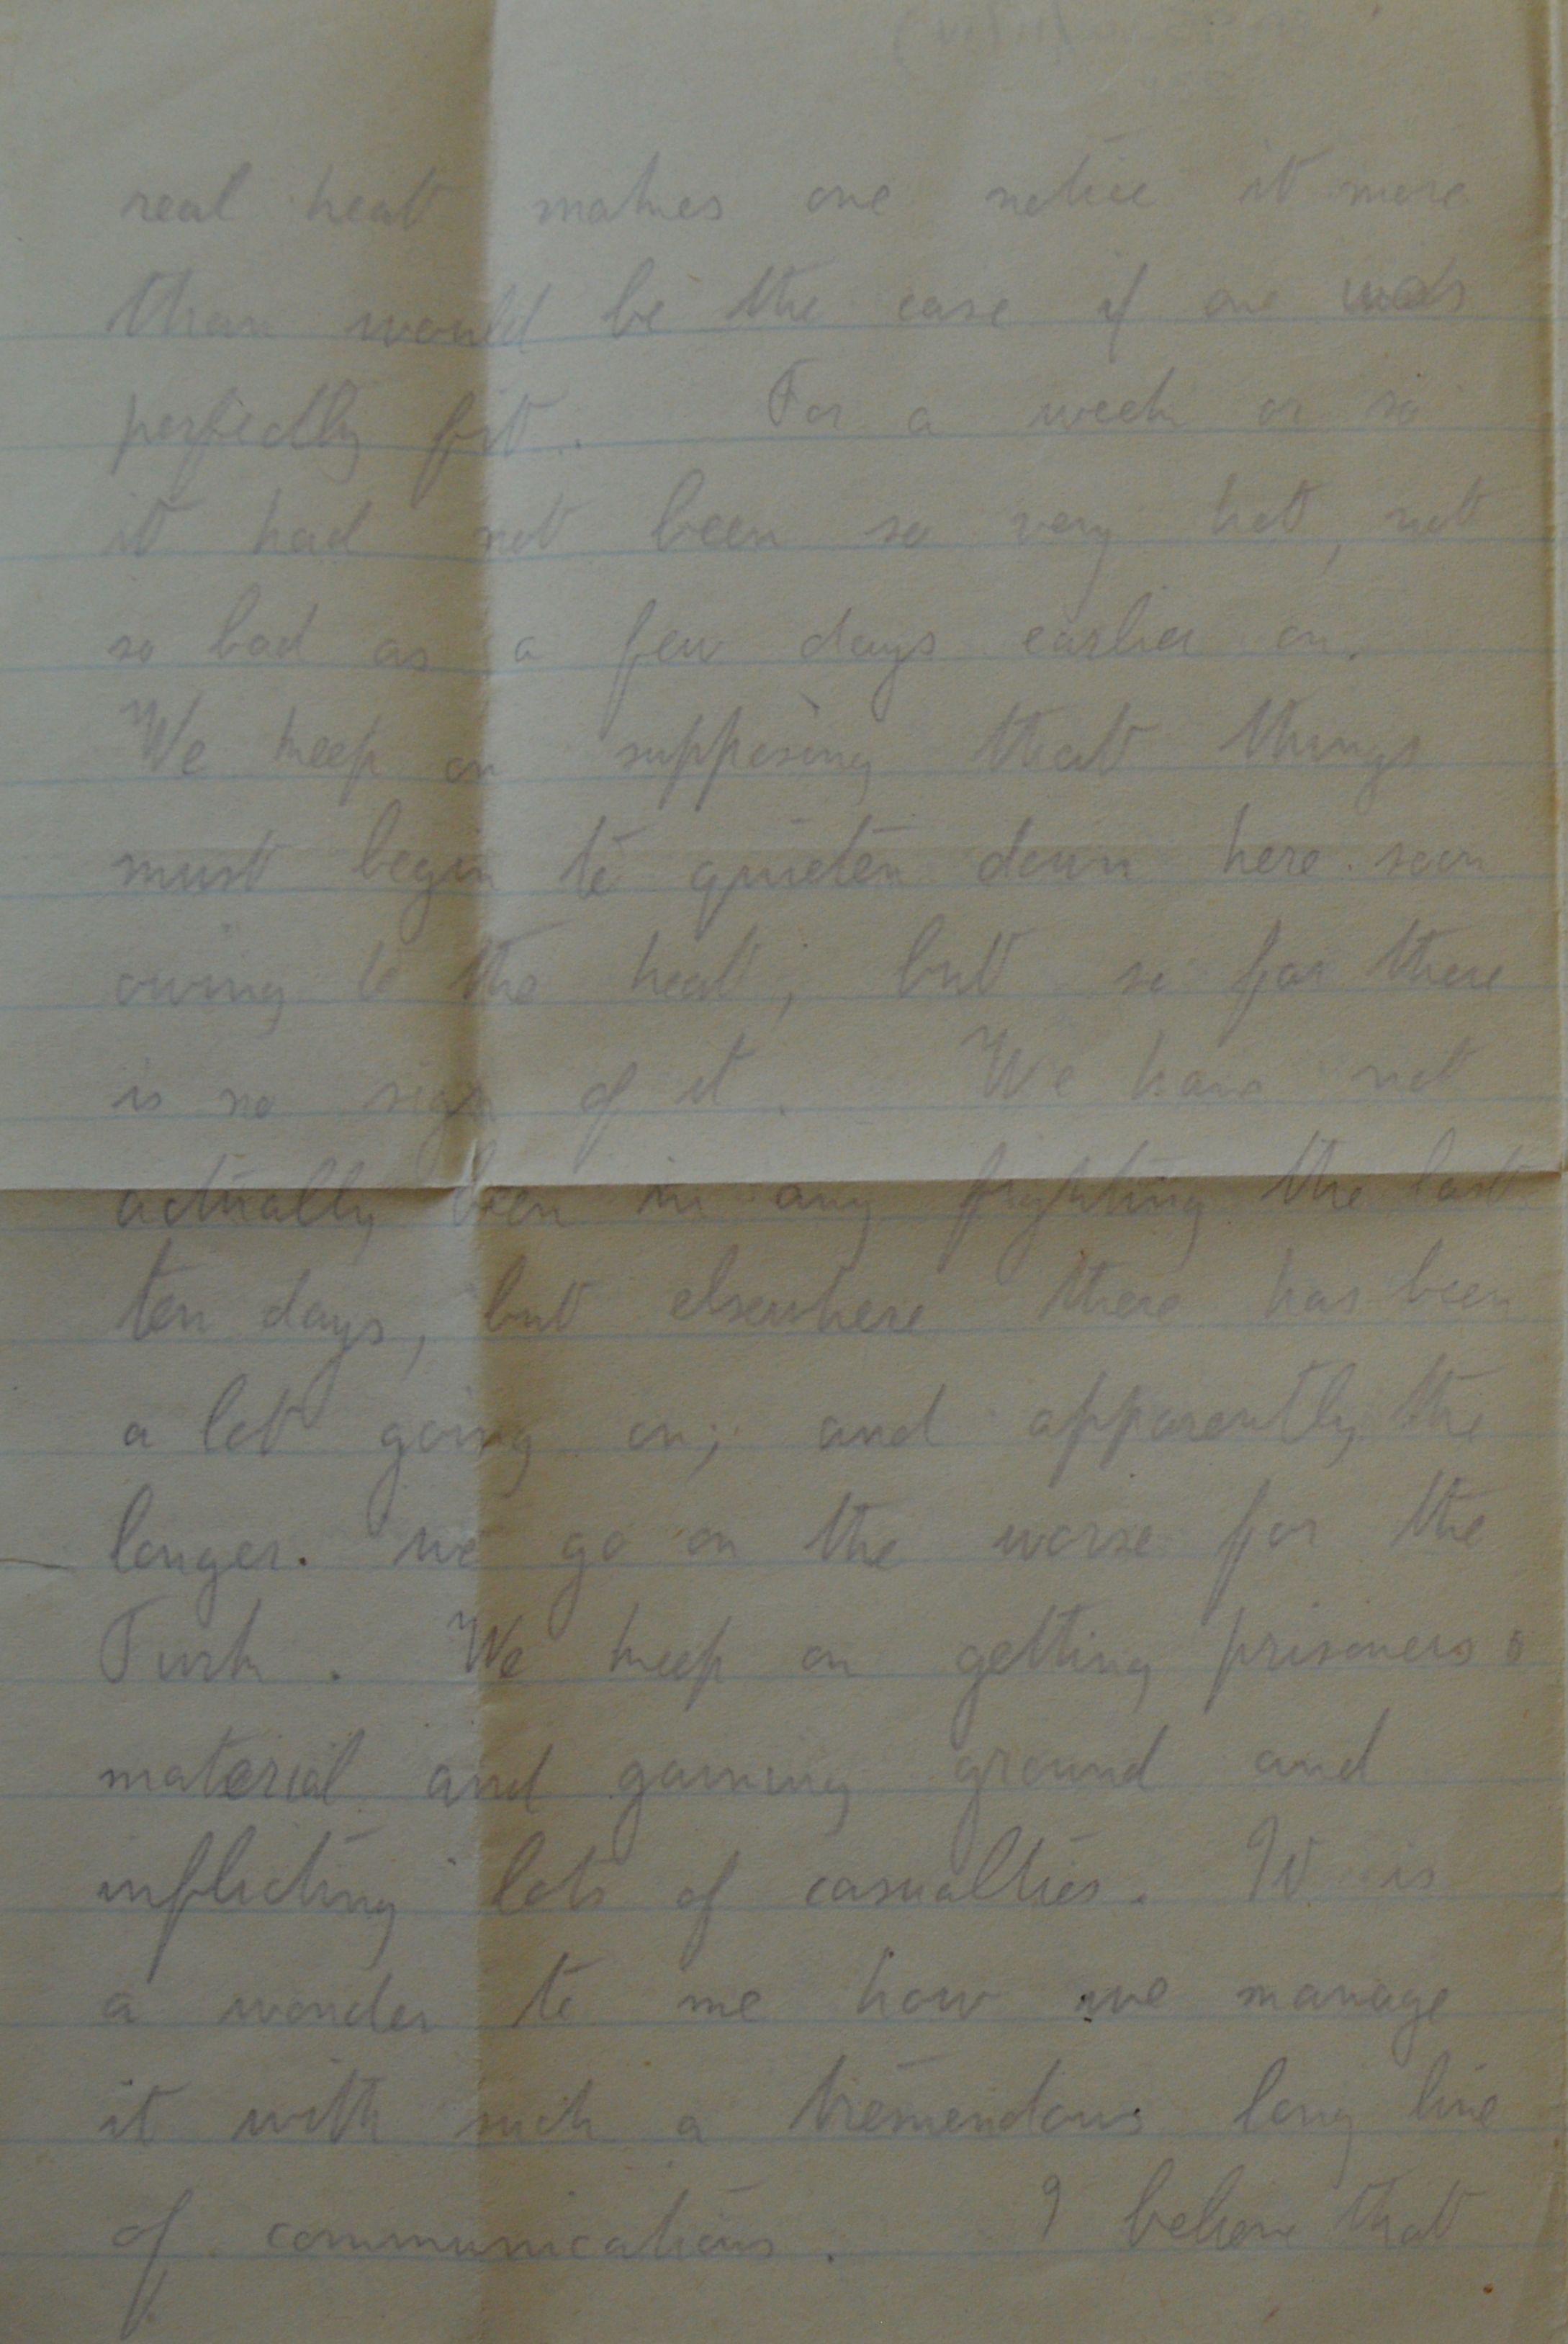 real heat makes one notice it more
than would be the case if one was
perfectly fit. For a week or so
it had not been so very hot, not
so bad as a few days earlier on.
We keep on supposing that things
must begin to quieten down here soon
owing to the heat; but so far there
is no sign of it. We have not
actually been in any fighting the last
ten days, but elsewhere there has been
a lot going on; and apparently the
longer we go on the worse for the
Turk. We keep on getting prisoners &
material and gaining ground and
inflicting lots of casualties. It is
a wonder to me how we manage
it with such a tremendous long line
of communications. I believe that